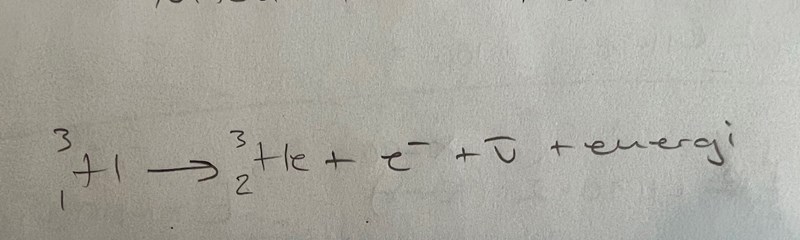 ³₁H → ³₂He + e⁻ + ν̄ + energi